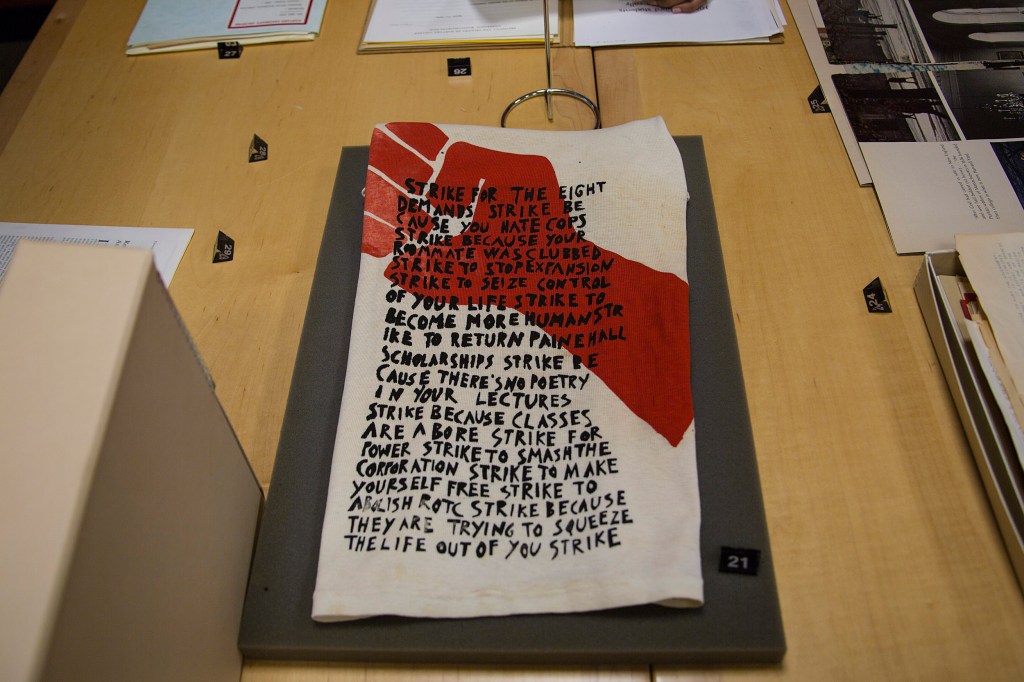 27
26
25
28
29
24
STRIKE FOR THE EIGHT
DEMANDS STRIKE BE
CAUSE YOU HATE COPS
STRIKE BECAUSE YOUR
ROOMMATE WAS CLUBBED
STRIKE TO STOP EXPANSION
STRIKE TO SEIZE CONTROL
OF YOUR LIFE STRIKE TO
BECOME MORE HUMAN STR
IKE TO RETURN PAINE HALL
SCHOLARSHIPS STRIKE BE
CAUSE THERE'S NO POETRY
IN YOUR LECTURES
STRIKE BECAUSE CLASSES
ARE A BORE STRIKE FOR
POWER STRIKE TO SMASH THE
CORPORATION STRIKE TO MAKE
YOURSELF FREE STRIKE TO
ABOLISH ROTC STRIKE BECAUSE
THEY ARE TRYING TO SQUEEZE
THE LIFE OUT OF YOU STRIKE
21